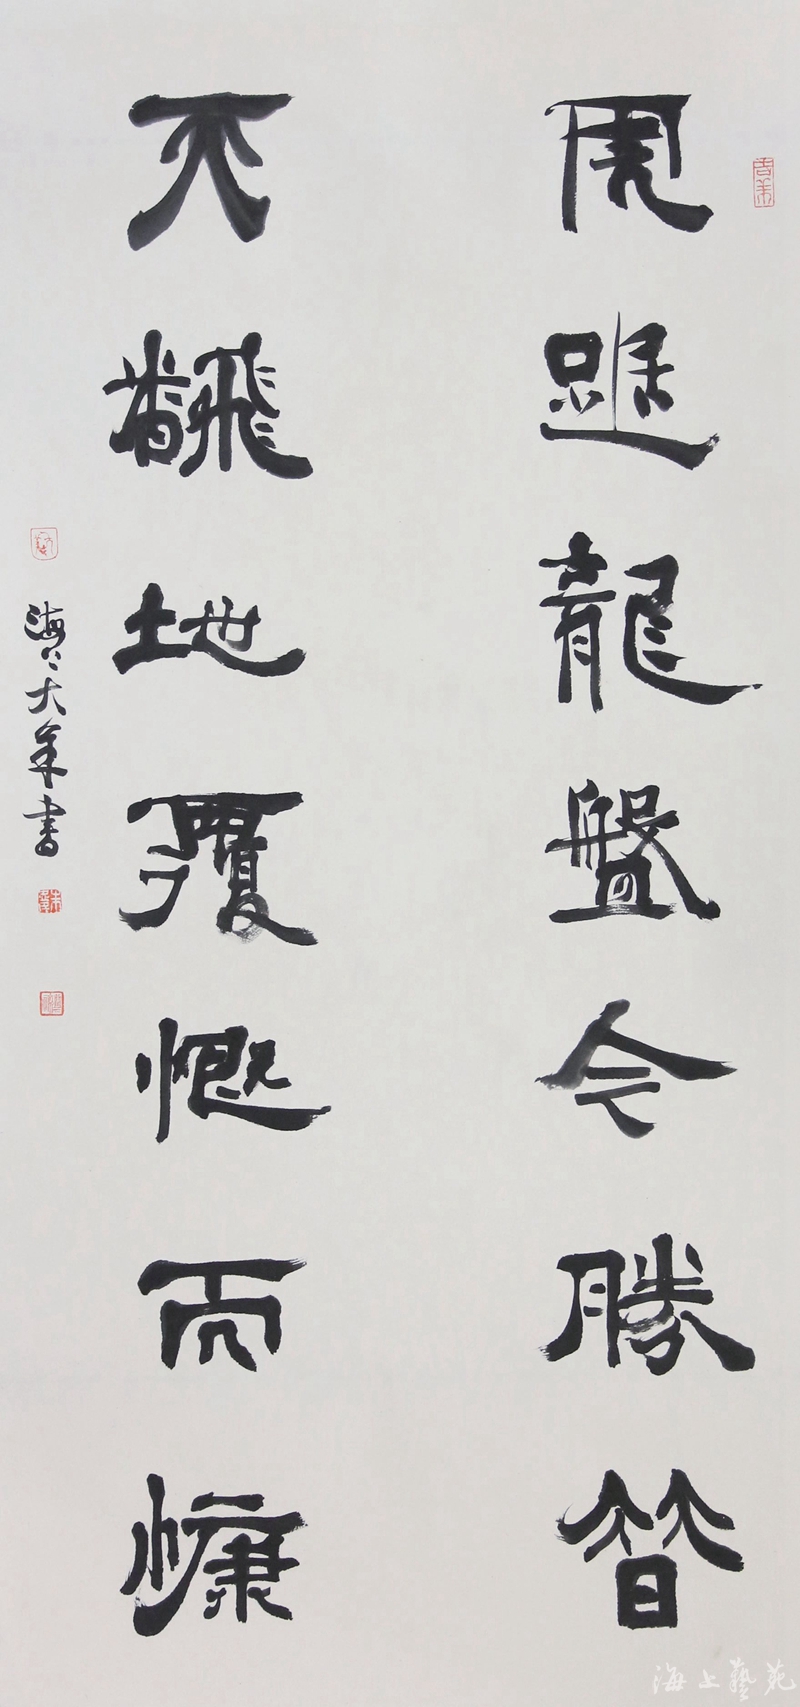 虎踞龍盤今勝昔
天飜地覆慨而慷
海上大年書
海上藝苑